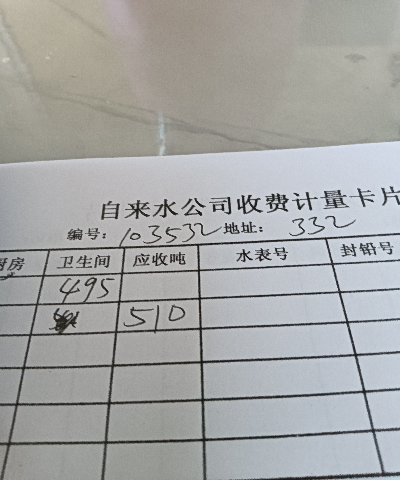 自来水公司收费计量卡片
编号: 103532 地址: 332
厨房 卫生间 应收吨 水表号 封铅号
495
510